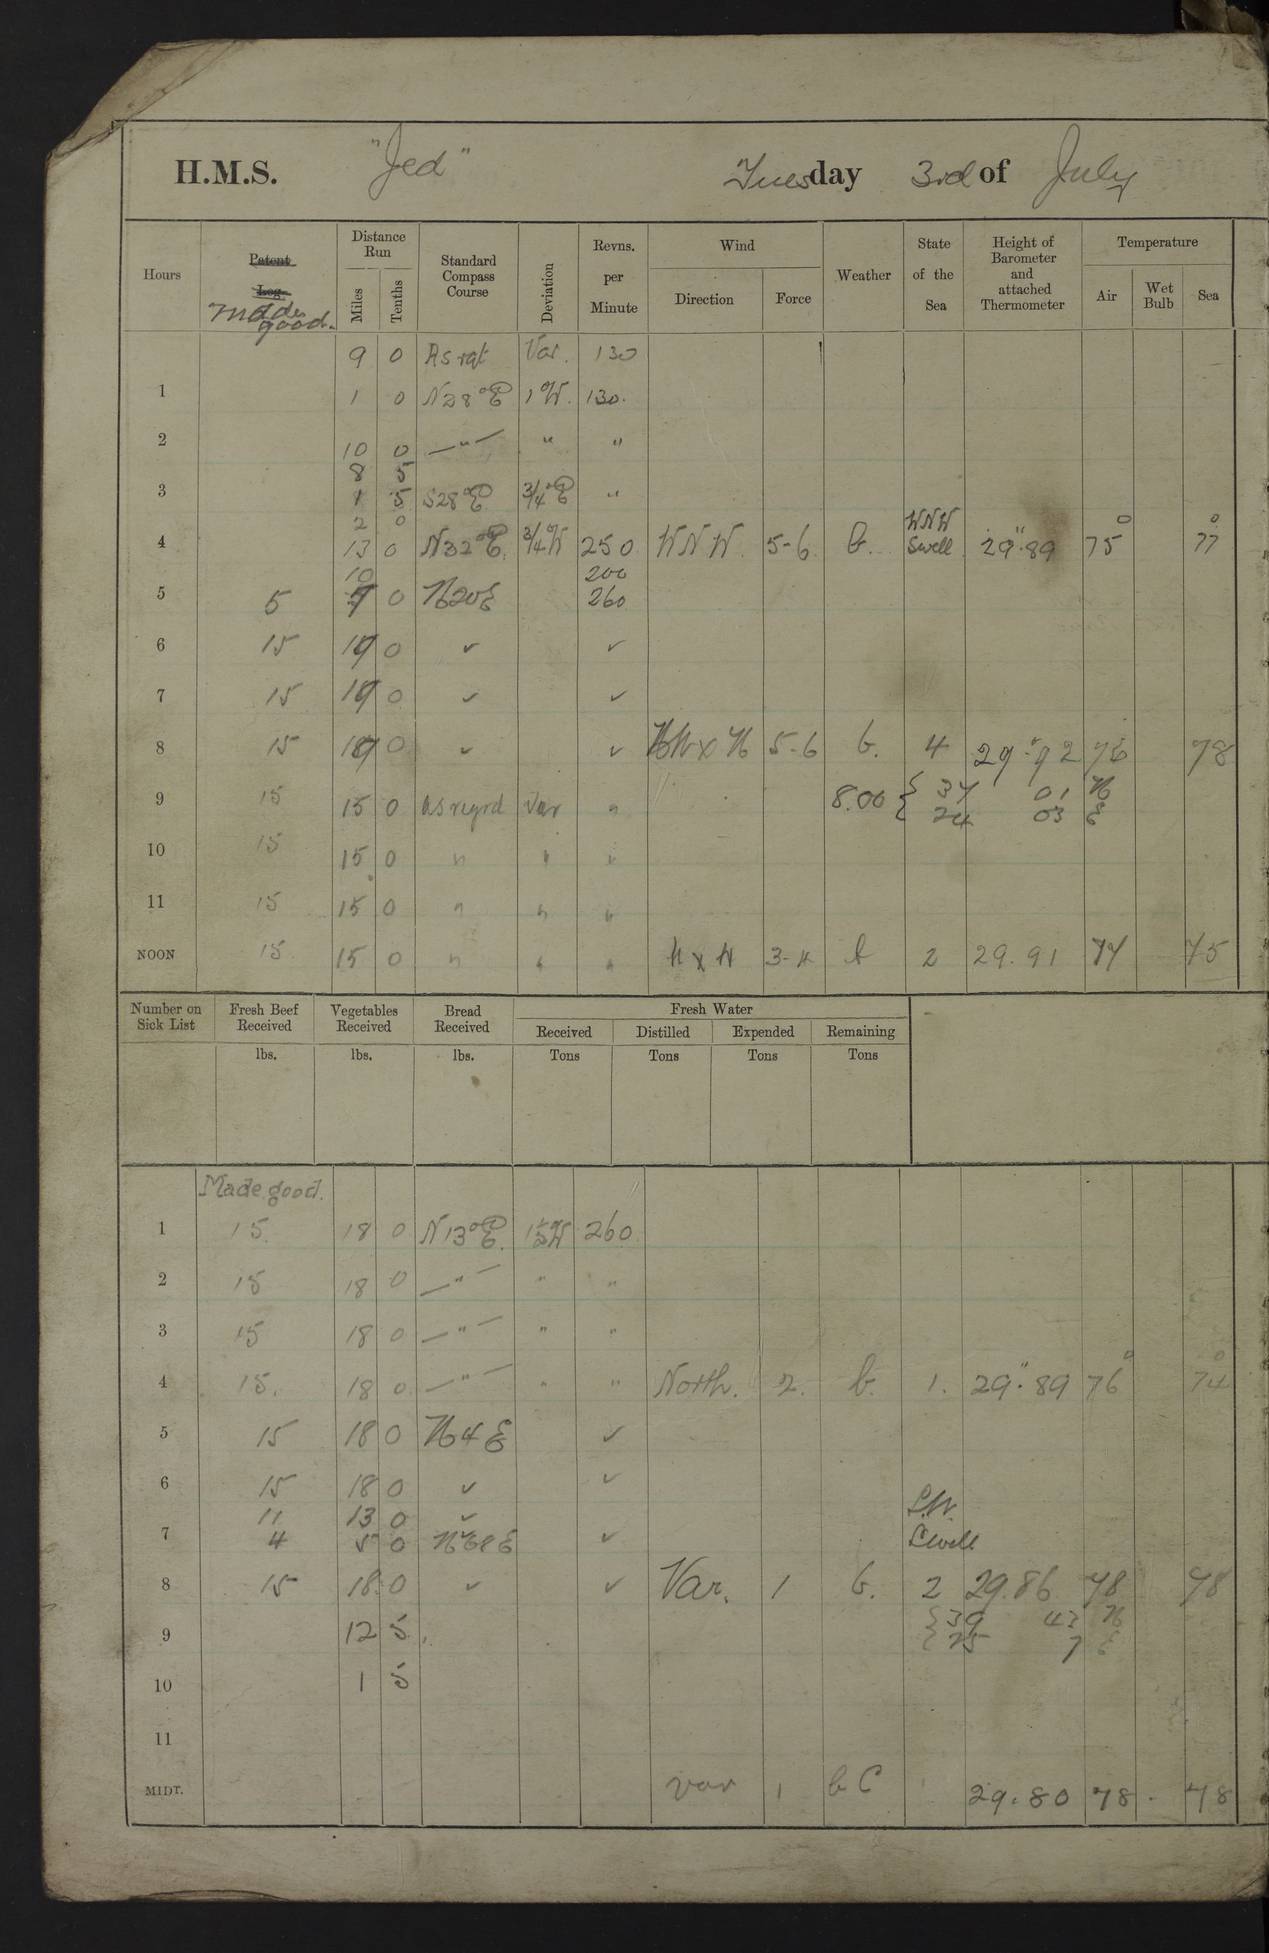 H.M.S. "Jed" Tuesday 3rd of July
Hours Patent Log Made good. Distance Run Miles Tenths Standard Compass Course Deviation Revns. per Minute Wind Direction Force Weather State of the Sea Height of Barometer and attached Thermometer Temperature Air Wet Bulb Sea
9 0 As rqt Var. 130
1 1 0 N28°E 1°W. 130.
2 10 0 —"— " "
8 5
3 1 5 S28°E 3/4°E "
2 0 WNW
4 13 0 N32°E. 3/4°W 250 WNW. 5-6 b. Swell 29".89 75° 77°
10 200
5 5 0 N20E 260
6 15 0 ✓ ✓
7 15 0 ✓ ✓
8 15 0 ✓ ✓ NWxN 5-6 b. 4 29".92 76 78
9 15 15 0 as reqrd Var " 8.00 { 37 01 N
24 03 E
10 15 15 0 " " "
11 15 15 0 " " "
NOON 15 15 0 " " " NxW 3-4 b 2 29.91 77 75
Number on Sick List Fresh Beef Received Vegetables Received Bread Received Fresh Water
Received Distilled Expended Remaining
lbs. lbs. lbs. Tons Tons Tons Tons
Made good.
1 15. 18 0 N13°E. 1½°W 260
2 15 18 0 —"— " "
3 15 18 0 —"— " "
4 15. 18 0 —"— " " North. 2. b. 1. 29".89 76° 74°
5 15 18 0 N4E ✓
6 15 18 0 ✓ ✓
11 13 0 ✓ S.W.
7 4 5 0 ✓ Swell
8 15 18.0 ✓ ✓ Var. 1 b. 2 29.86 78 78
9 12 5 { 39 43 N
25 7 E
10 1 5
11
MIDT. var 1 bC 29.80 78 78